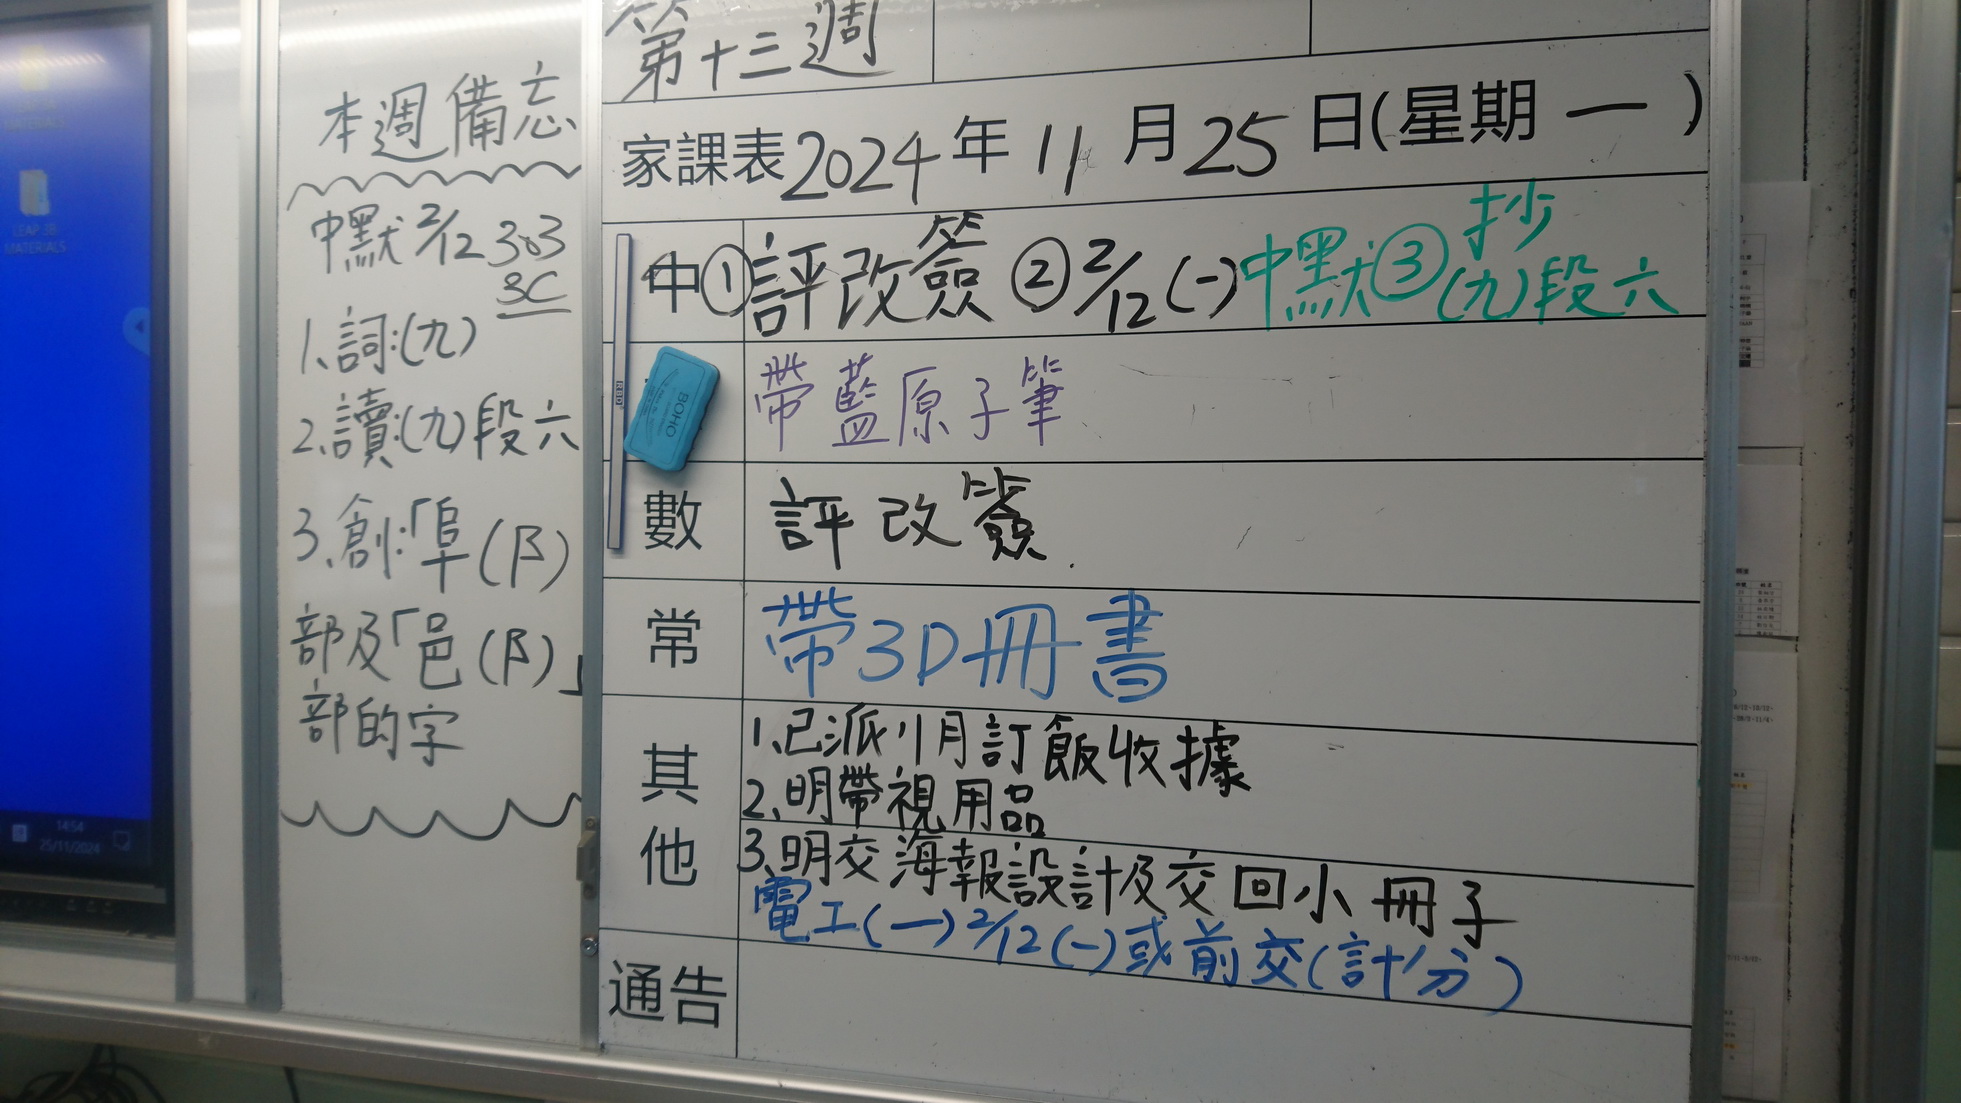 本週備忘
中默 2/12 303
3C
1、詞:(九)
2、讀:(九)段六
3、創:「阜(阝)
部及「邑(阝)」
部的字
第十三週
家課表 2024 年 11 月 25 日(星期 一 )
中 ①評改簽 ②2/12(一)中默③抄
(九)段六
帶藍原子筆
數 評改簽
常 帶3D冊書
其他
1、已派1月訂飯收據
2、明帶視用品
3、明交海報設計及交回小冊子
電工(一)2/12(一)或前交(計分)
通告
BOHO
LEAP 3B
MATERIALS
14:54
25/11/2024